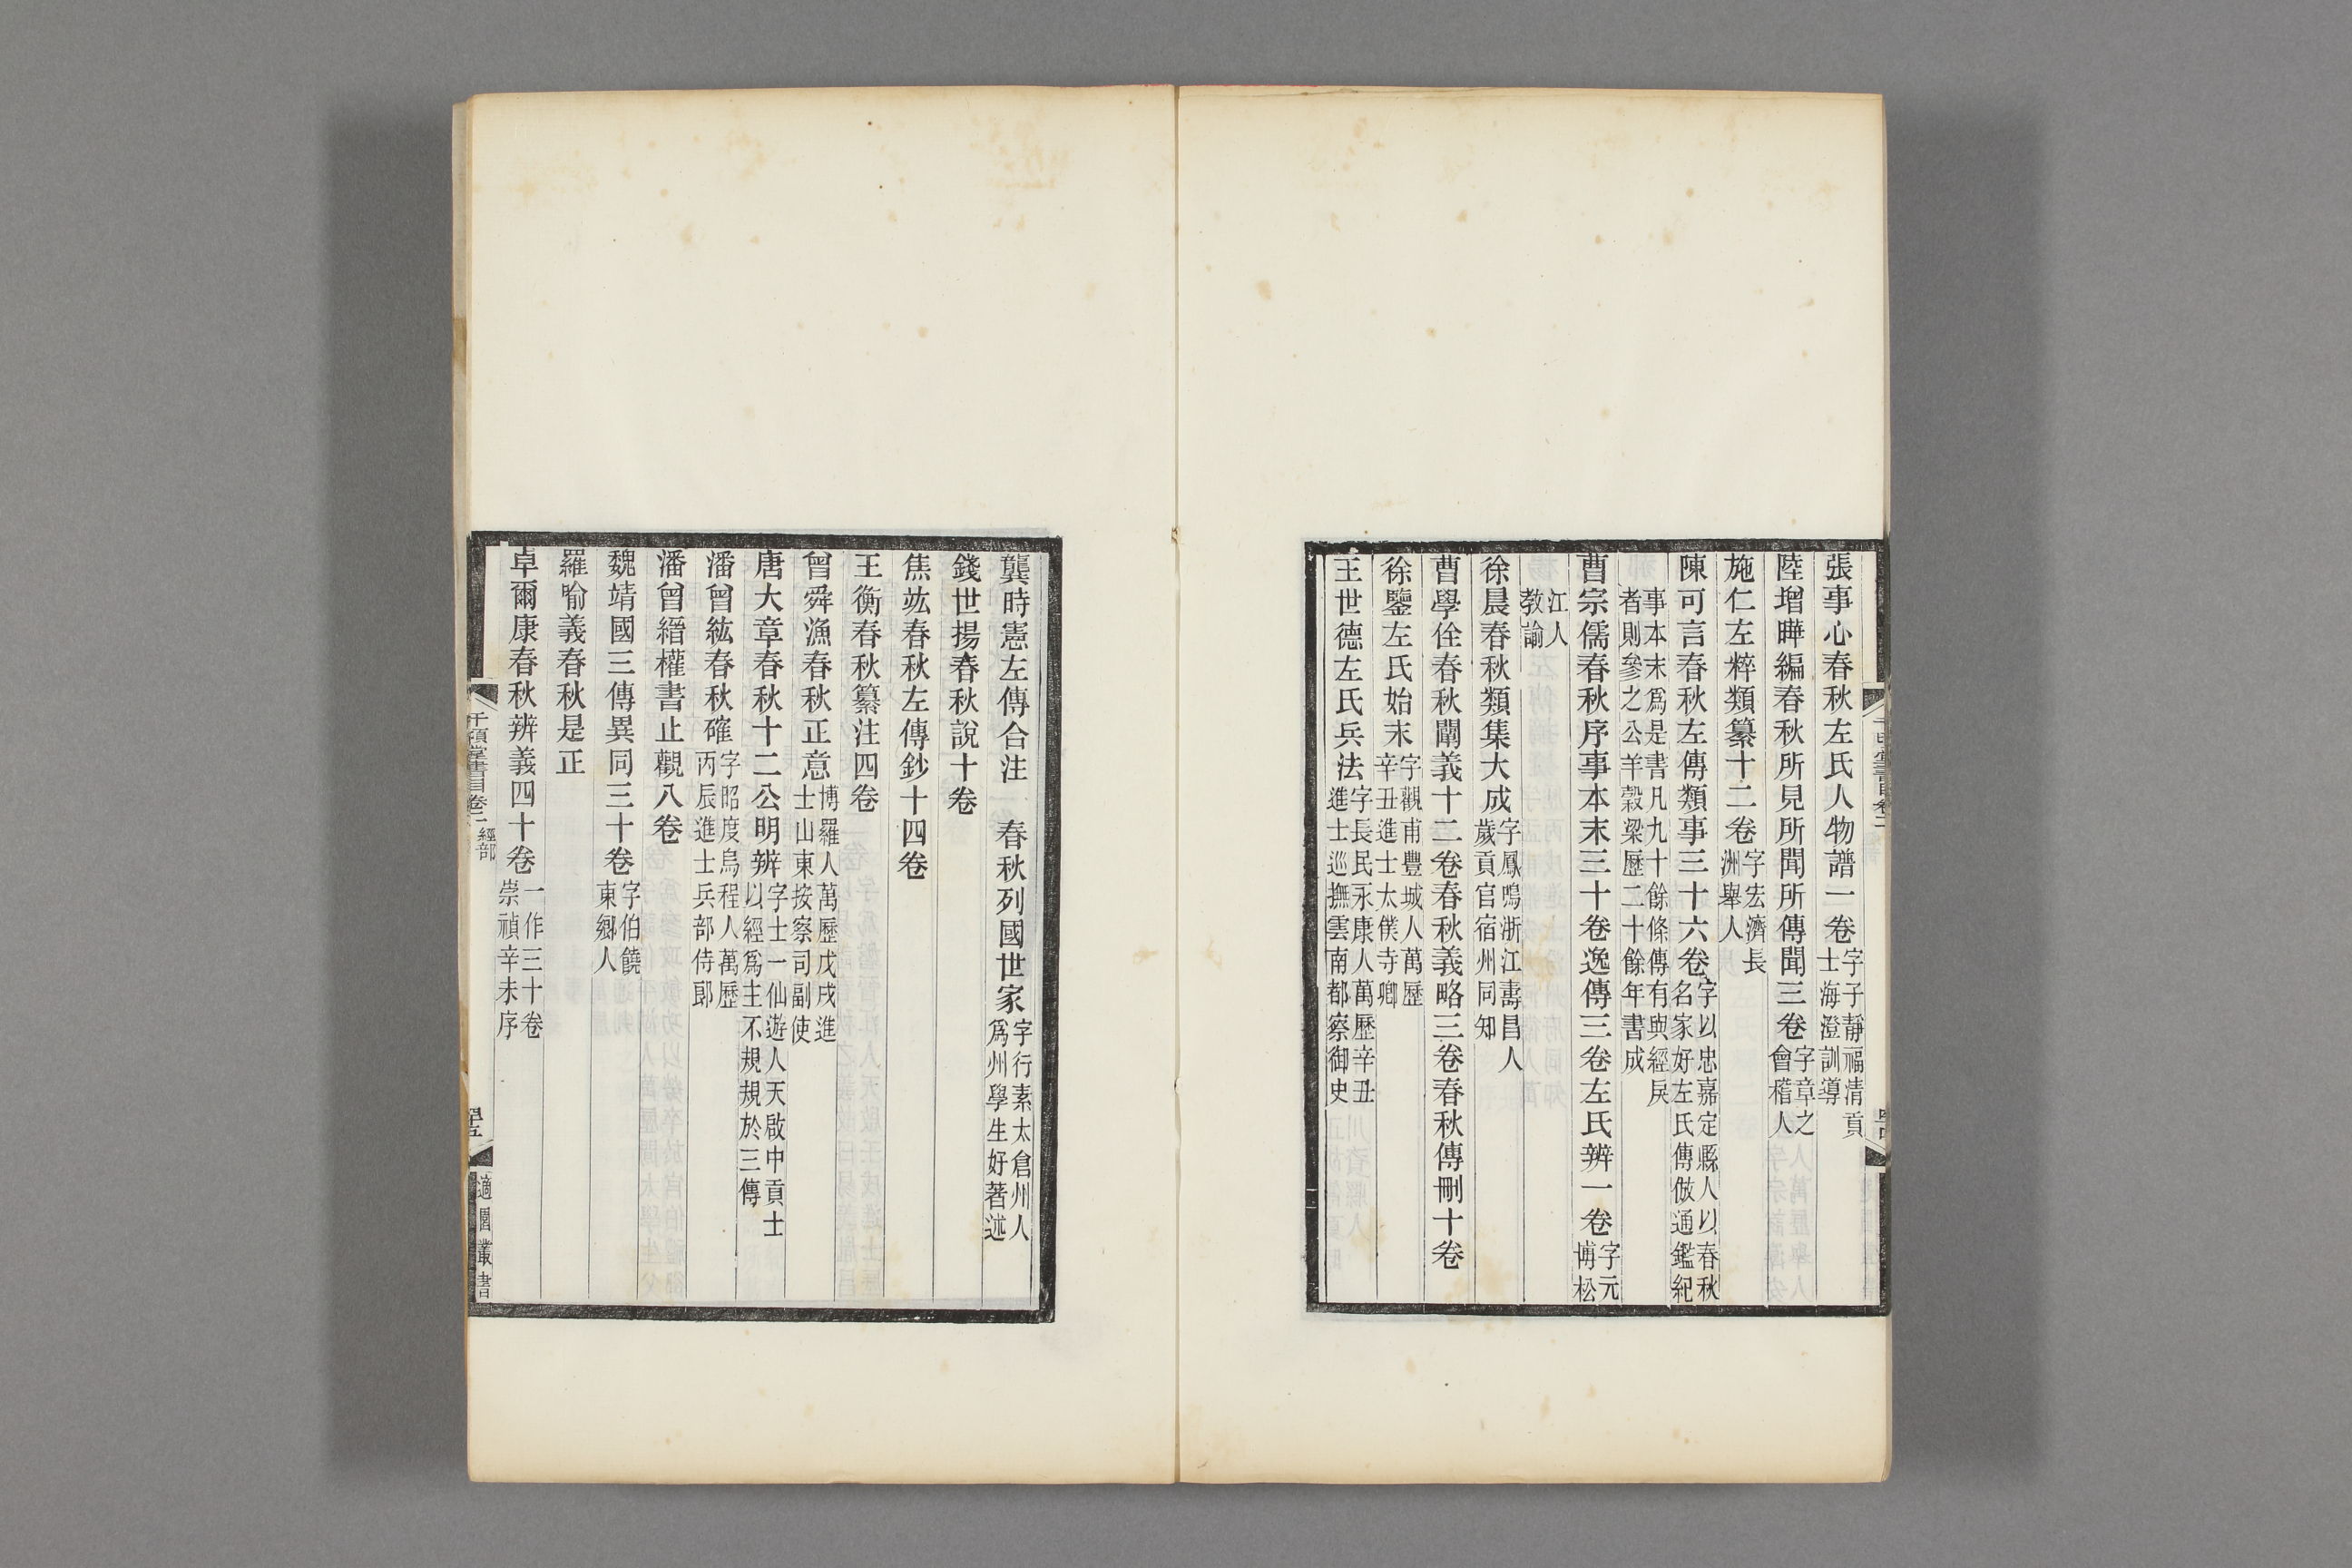 張事心春秋左氏人物譜一卷字子靜福清貢士海澄訓導
陸增曄編春秋所見所聞所傳聞三卷字章之會稽人
施仁左粹類纂十二卷字宏濟長洲舉人
陳可言春秋左傳類事三十六卷字以忠嘉定縣人以春秋名家好左氏傳倣通鑑紀
事本末爲是書凡九十餘條傳有與經戾者則參之公羊穀梁歷二十餘年書成
曹宗儒春秋序事本末三十卷逸傳三卷左氏辨一卷字元博松
江人教諭
徐晨春秋類集大成字鳳鳴浙江壽昌人歲貢官宿州同知
曹學佺春秋闡義十二卷春秋義略三卷春秋傳刪十卷
徐鑒左氏始末字觀甫豐城人萬歷辛丑進士太僕寺卿
王世德左氏兵法字長民永康人萬歷辛丑進士巡撫雲南都察御史
龔時憲左傳合注 春秋列國世家字行素太倉州人爲州學生好著述
錢世揚春秋說十卷
焦竑春秋左傳鈔十四卷
王衡春秋纂注四卷
曾舜漁春秋正意博羅人萬歷戊戌進士山東按察司副使
唐大章春秋十二公明辨字士一仙遊人天啟中貢士以經爲主不規規於三傳
潘曾紘春秋確字昭度烏程人萬歷丙辰進士兵部侍郎
潘曾縉權書止觀八卷
魏靖國三傳異同三十卷字伯饒東鄉人
羅喻義春秋是正
卓爾康春秋辨義四十卷一作三十卷崇禎辛未序
千頃堂書目卷二 經部
四十五
適園叢書